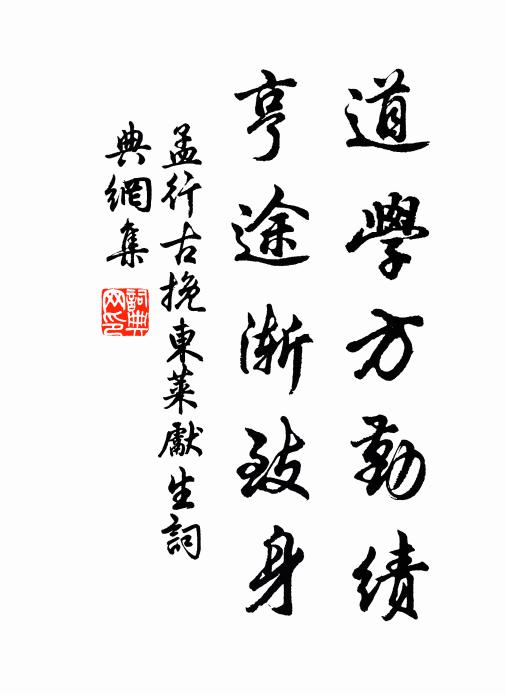 道學方勤績
亨途漸致身
孟行古挽東萊獻生詞
典網集
詞典網印